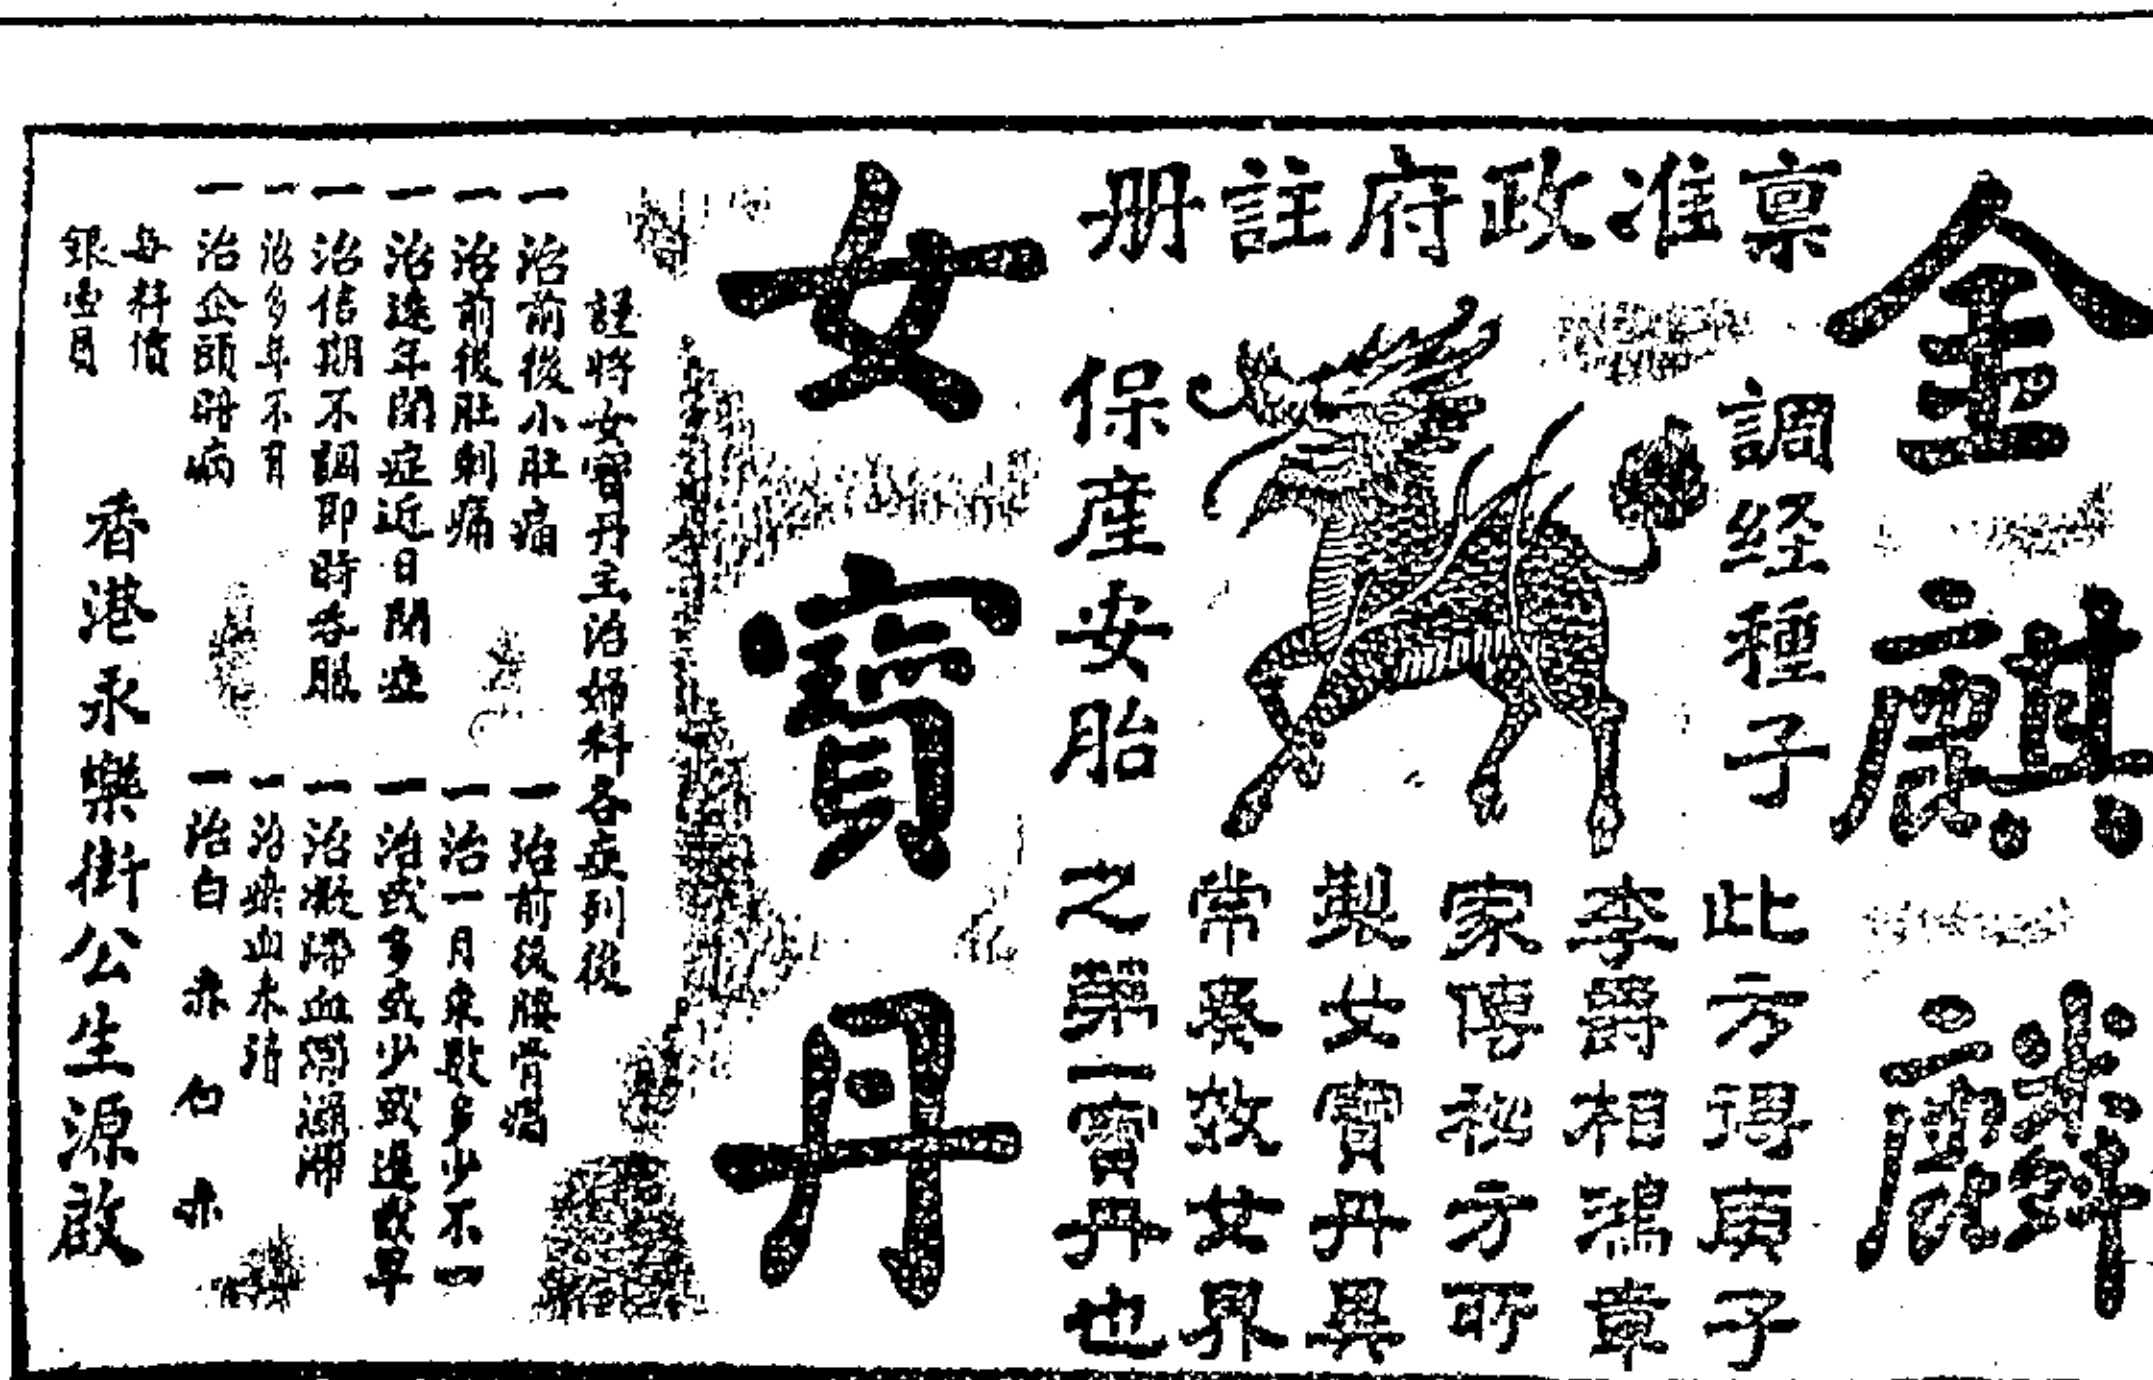 金麒麟
稟准政府註册
調經種子
保產安胎
此方得庚子
李爵相鴻章
家傳秘方所
製女寶丹異
常奏效女界
之第一寶丹也
女寶丹
謹將女寶丹主治婦科各症列後
一治前後小肚痛
一治前後肚刺痛
一治遠年閉症近日閉症
一治信期不調即時吞服
一治多年不育
一治企頭暗病
一治前後腰骨痛
一治一月來數多少不一
一治或多或少或遲或早
一治凝滯血
一治 血未清
一治白
每料價
銀壹員
香港永樂街公生源啟